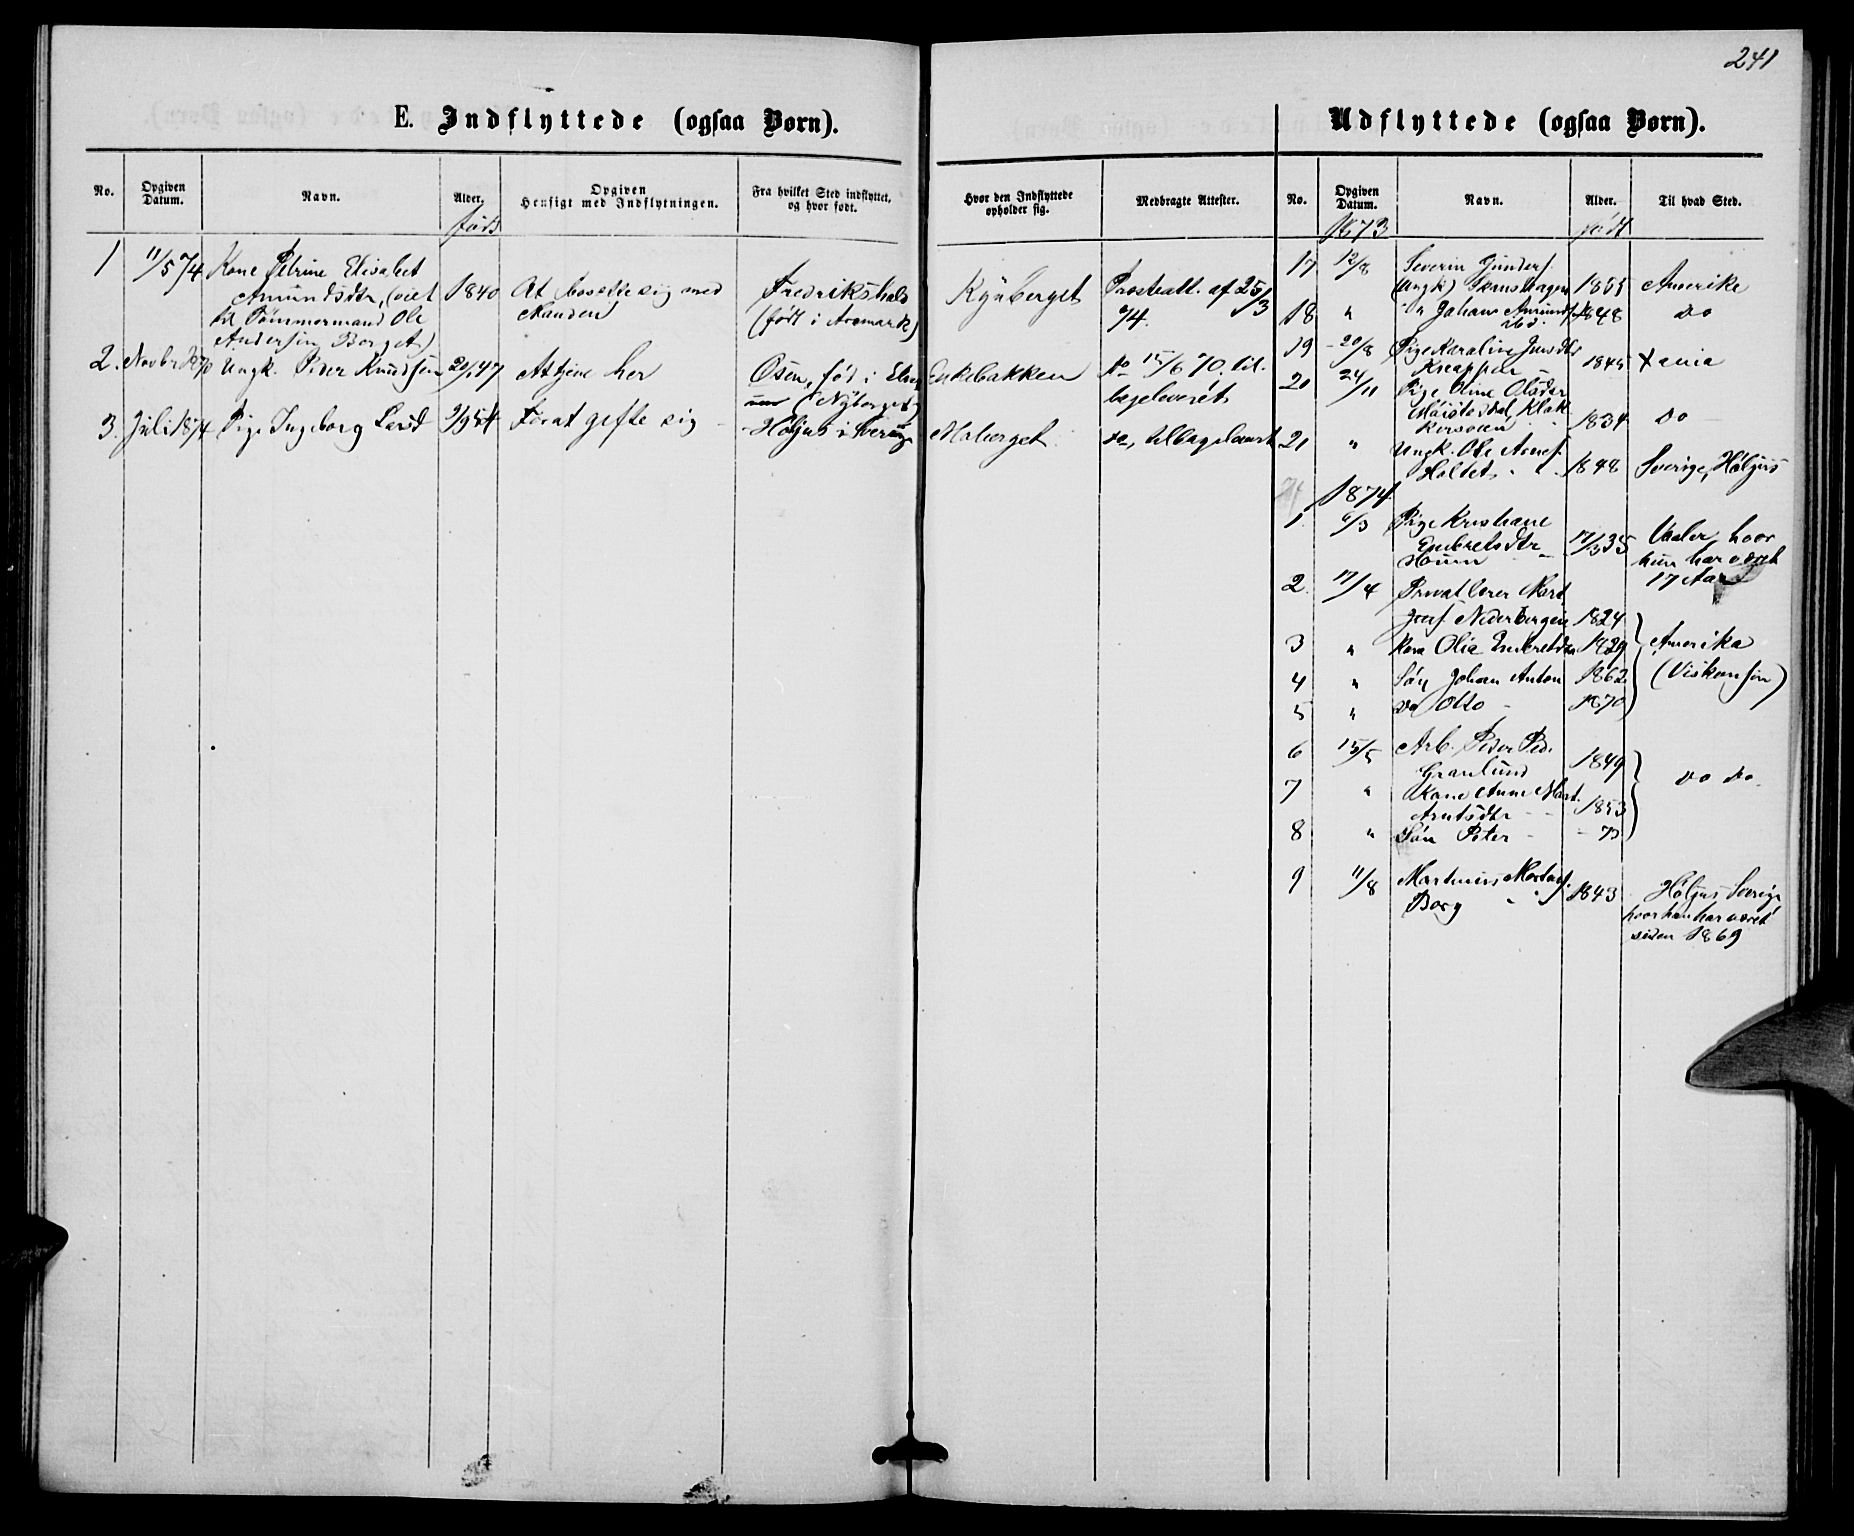 241
E. Indflyttede (ogsaa Børn).
No.
Opgiven Datum.
Navn.
Alder.
født
Opgiven Hensigt med Indflytningen.
Fra hvilket Sted indflyttet, og hvor født.
Hvor den Indflyttede opholder sig.
Medbragte Attester.
1 11/5 74 Kone Petrine Elisabet
Amundsdtr, (viet
til Tømmermand Ole
Andersen Berget)
1840
At bosætte sig med
Manden
Fredrikshald
(født i Aremark)
Kynberget
Præsteatt. af 25/3
74.
2. Novbr 1870 Ungk. Peder Knudsen
20/1 47
At tjene her
Osen, fød i Elve-
rum (Nyberget)
Enkebakken
do 15/6 70, til-
bageleveret
3. Juli 1874 Pige Ingeborg Larsd
2/9 54
For at gifte sig
Høljes i Sverige
do, tilbageleveret
Udflyttede (ogsaa Børn).
No.
Opgiven Datum.
Navn.
Alder.
Til hvad Sted.
1873
født
17 12/8 Severin Gunders.
(Ungk) 1855 Amerika
18 " " Johans Amunds. 1848 do
ibd.
19 20/8 Pige Karoline Jensdtr
Knappen 1845 Xania
20 24/11 Pige Oline Olsdtr
1834 do
21 " Ungk. Ole Arnes.
Holtet 1848 Sverige, Høljes
1874.
1. 6/3 Pige Kristiane
Embretsdtr
Moum 17/3 35 Vaaler, hvor
hun har været
17 Aar
2. 17/4 Privatlærer Mort.
Joes. Nederbergen 1824
3 " Kona Olia Embretsdtr 1829 Amerika
4 " Søn Johan Anton 1862 (Viskonsin)
5 " do Otto 1870
6 15/5 Arb. Peder Ped.
Granlund 1849
7 " Kone Anne Mart.
Arntsdtr 1853 do do
8 " Søn Peter - 73
9 11/8 Martinus Mortens.
Borg 1843 Høljes Sverige
hvor han har været
siden 1869